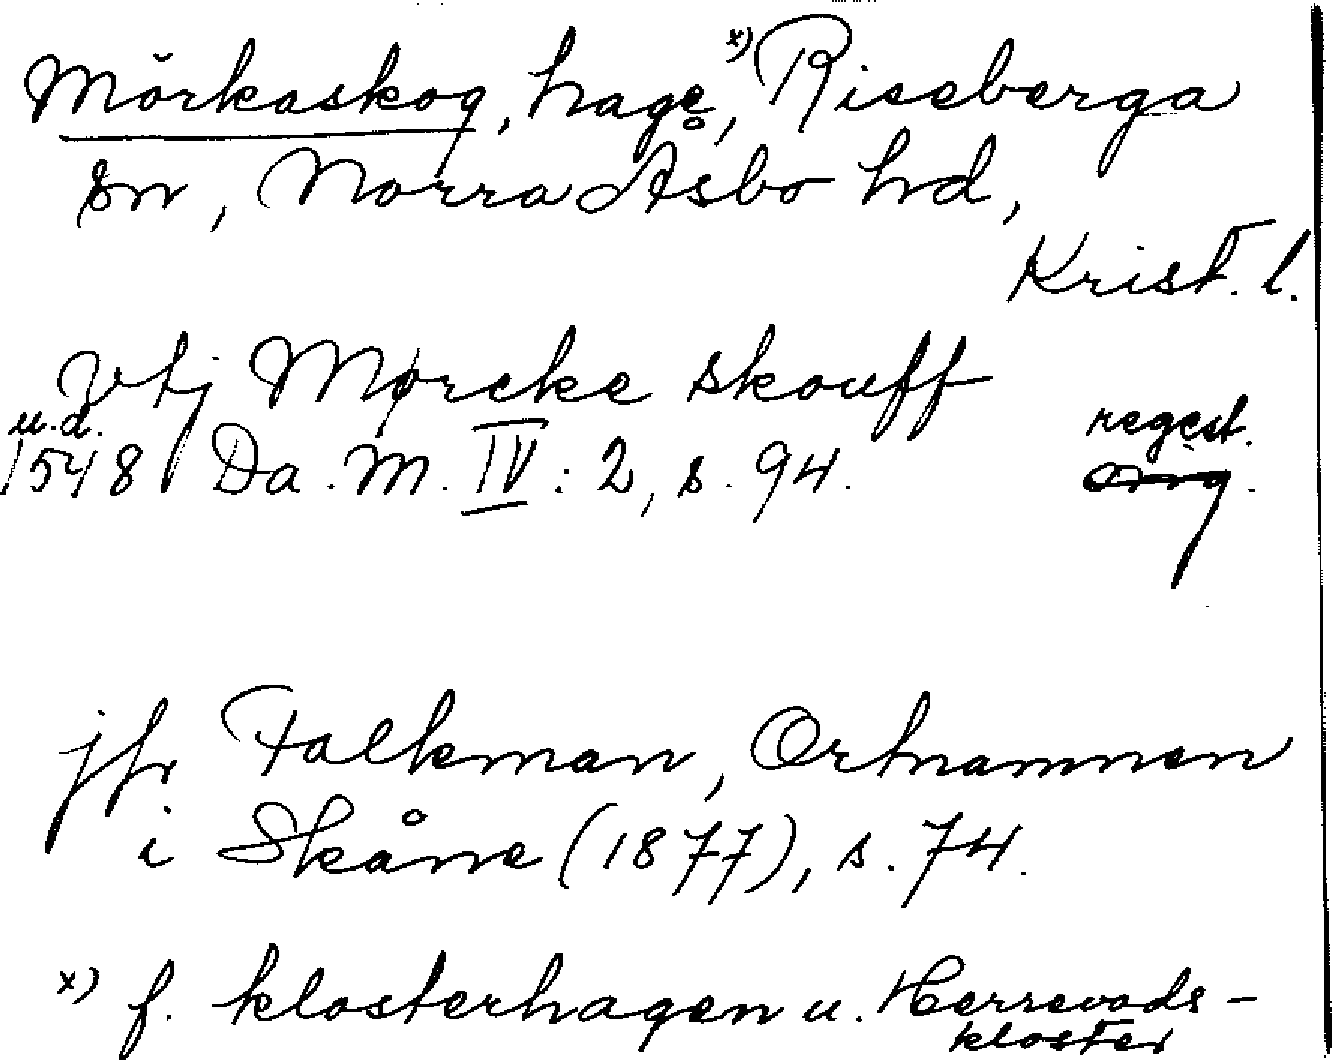 Mörkaskog, hage, x) Riseberga
sn, Norra Åsbo hd,
Krist. l.
vtj Mørcke skouff
u.d. regest.
1548 Da. M. IV: 2, s. 94.
jfr Falkman, Ortnamnen
i Skåne (1877), s. 74.
x) f. klosterhagen u. Herrevads-
kloster